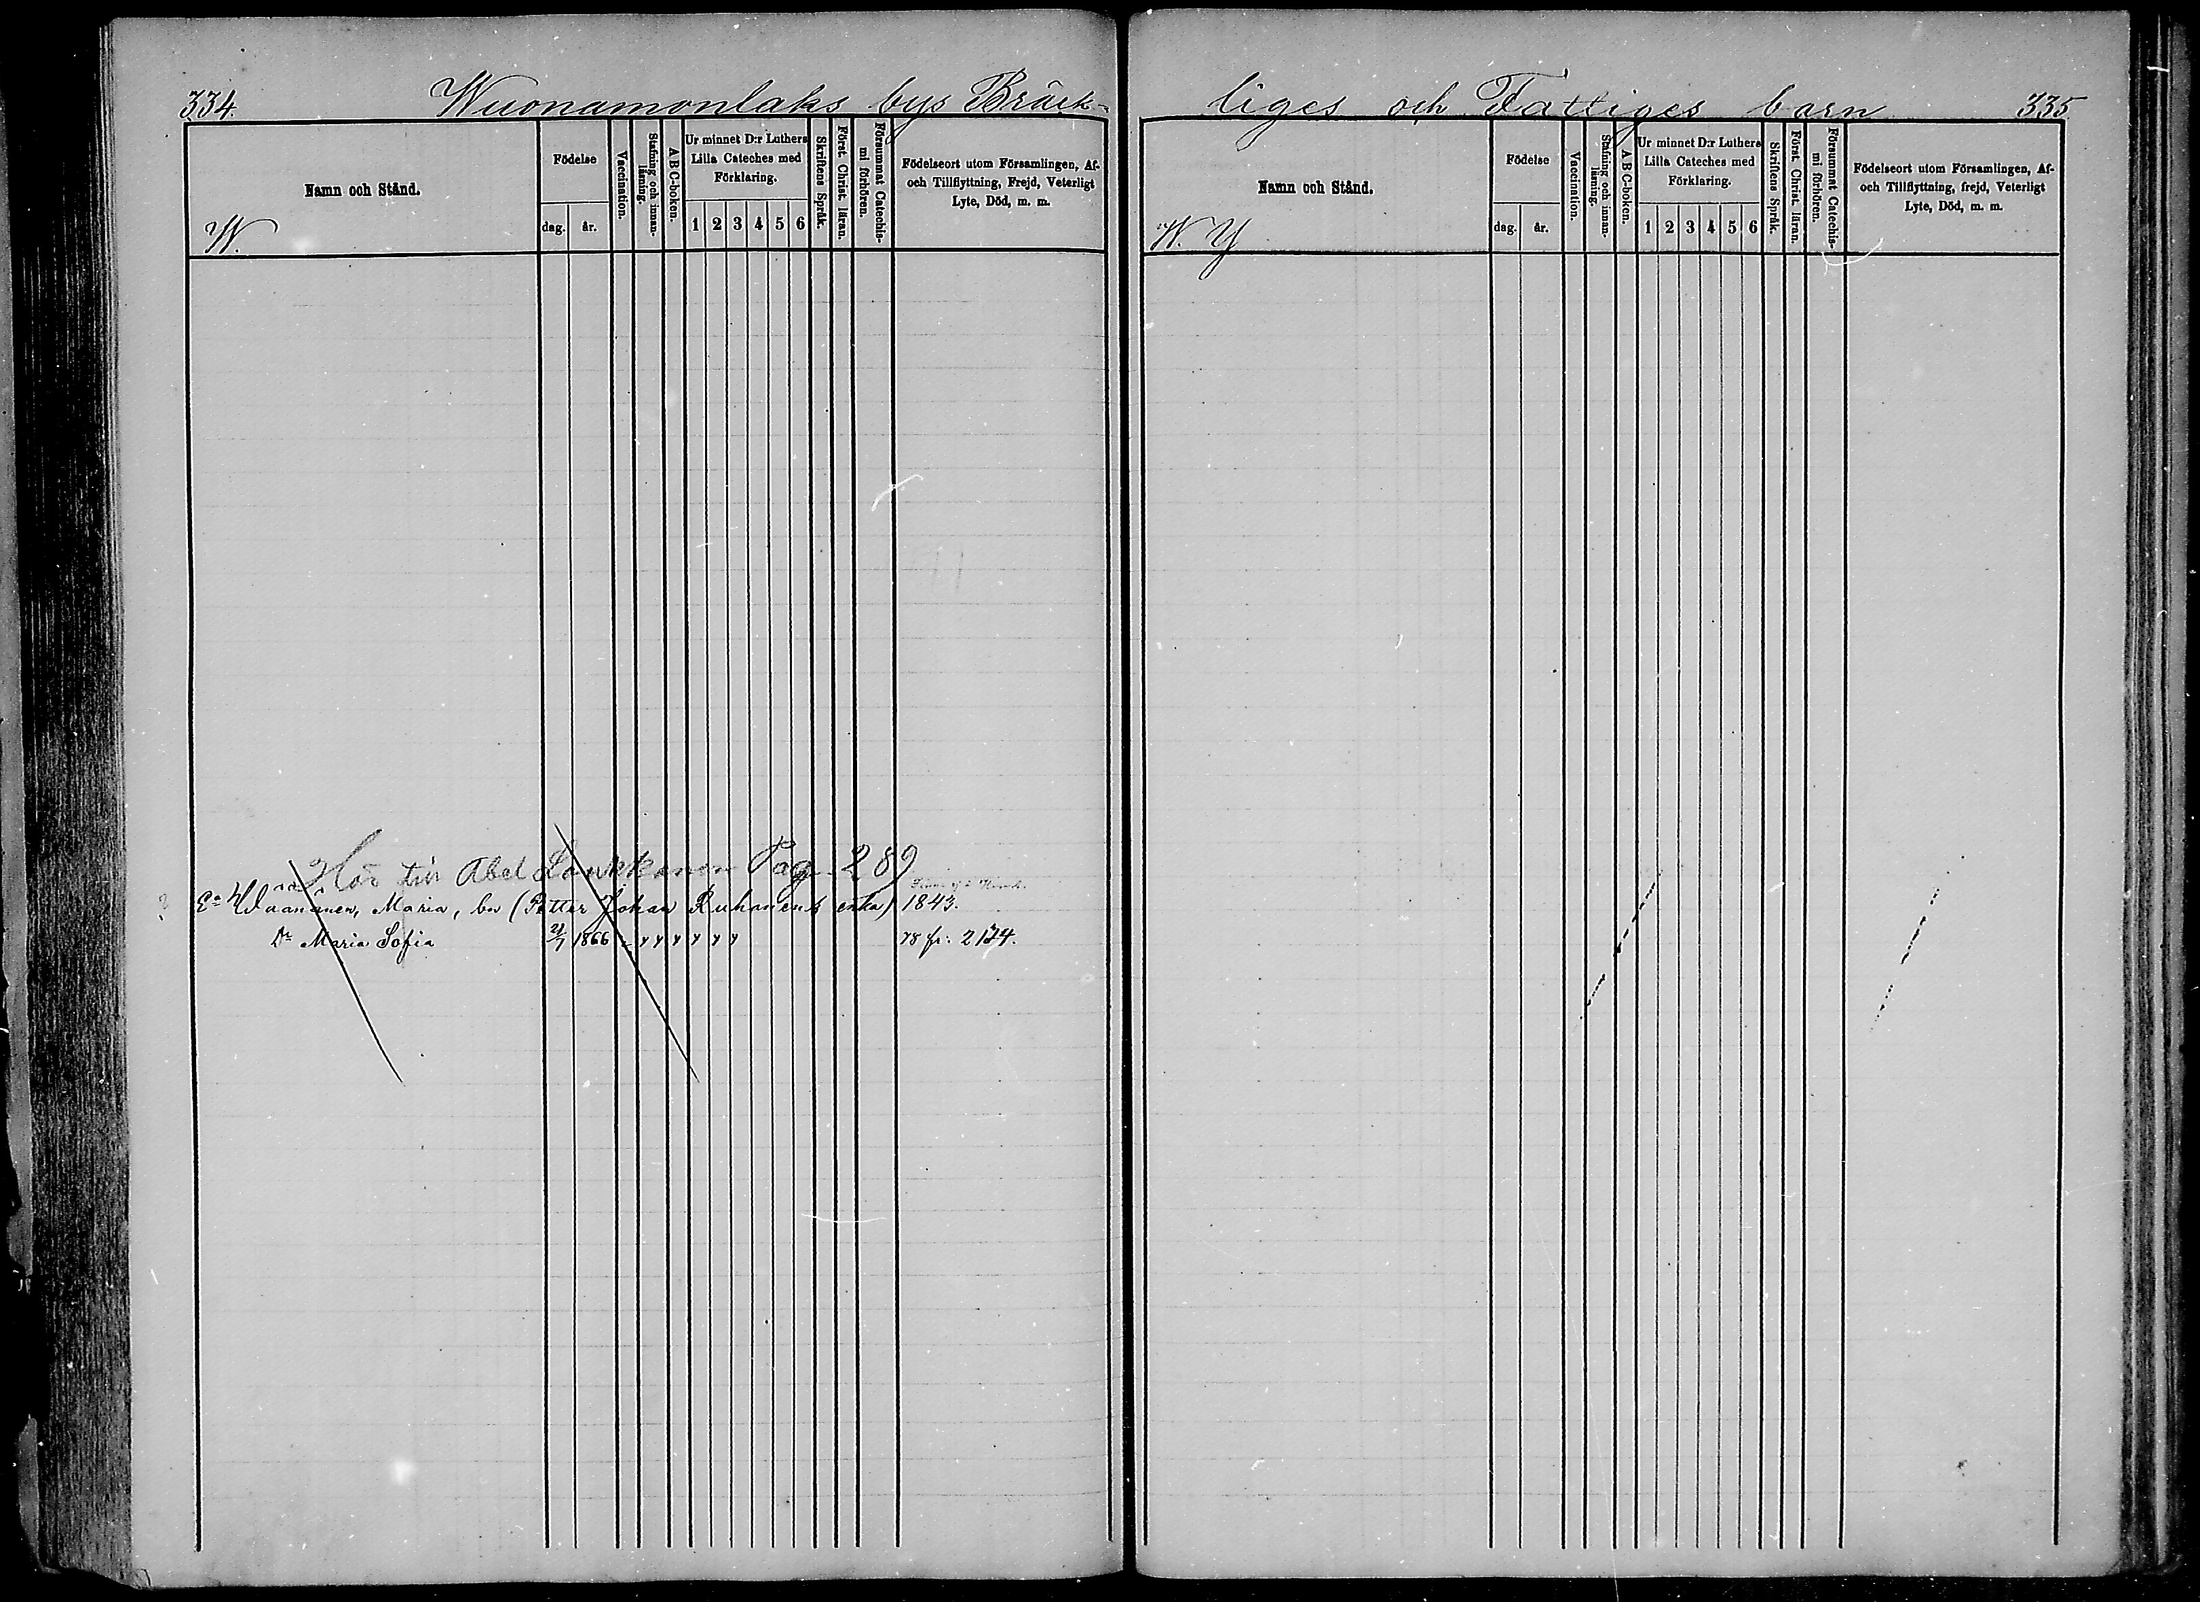 334. Wuonamonlaks bys Bräck-
Namn och Stånd.
W.
Födelse
dag. år.
Vaccination.
Stafning och innan-
läsning.
A B C-boken.
Ur minnet D:r Luthers
Lilla Cateches med
Förklaring.
1 2 3 4 5 6
Skriftens Språk.
Först. Christ. läran.
Försummat Catechis-
mi förhören.
Födelseort utom Församlingen, Af-
och Tillflyttning, Frejd, Veterligt
Lyte, Död, m. m.
Abel Loukkanen Pag. 289
Ea Waanänen, Maria, bn (Petter Johan Ruhanens enka) 1843.
Dr Maria Sofia 21/7 1866 78 fr: 2174.
liges och Fattiges barn 335
Namn och Stånd.
W. Y
Födelse
dag. år.
Vaccination.
Stafning och innan-
läsning.
A B C-boken.
Ur minnet D:r Luthers
Lilla Cateches med
Förklaring.
1 2 3 4 5 6
Skriftens Språk.
Först. Christ. läran.
Försummat Catechis-
mi förhören.
Födelseort utom Församlingen, Af-
och Tillflyttning, frejd, Veterligt
Lyte, Död, m. m.